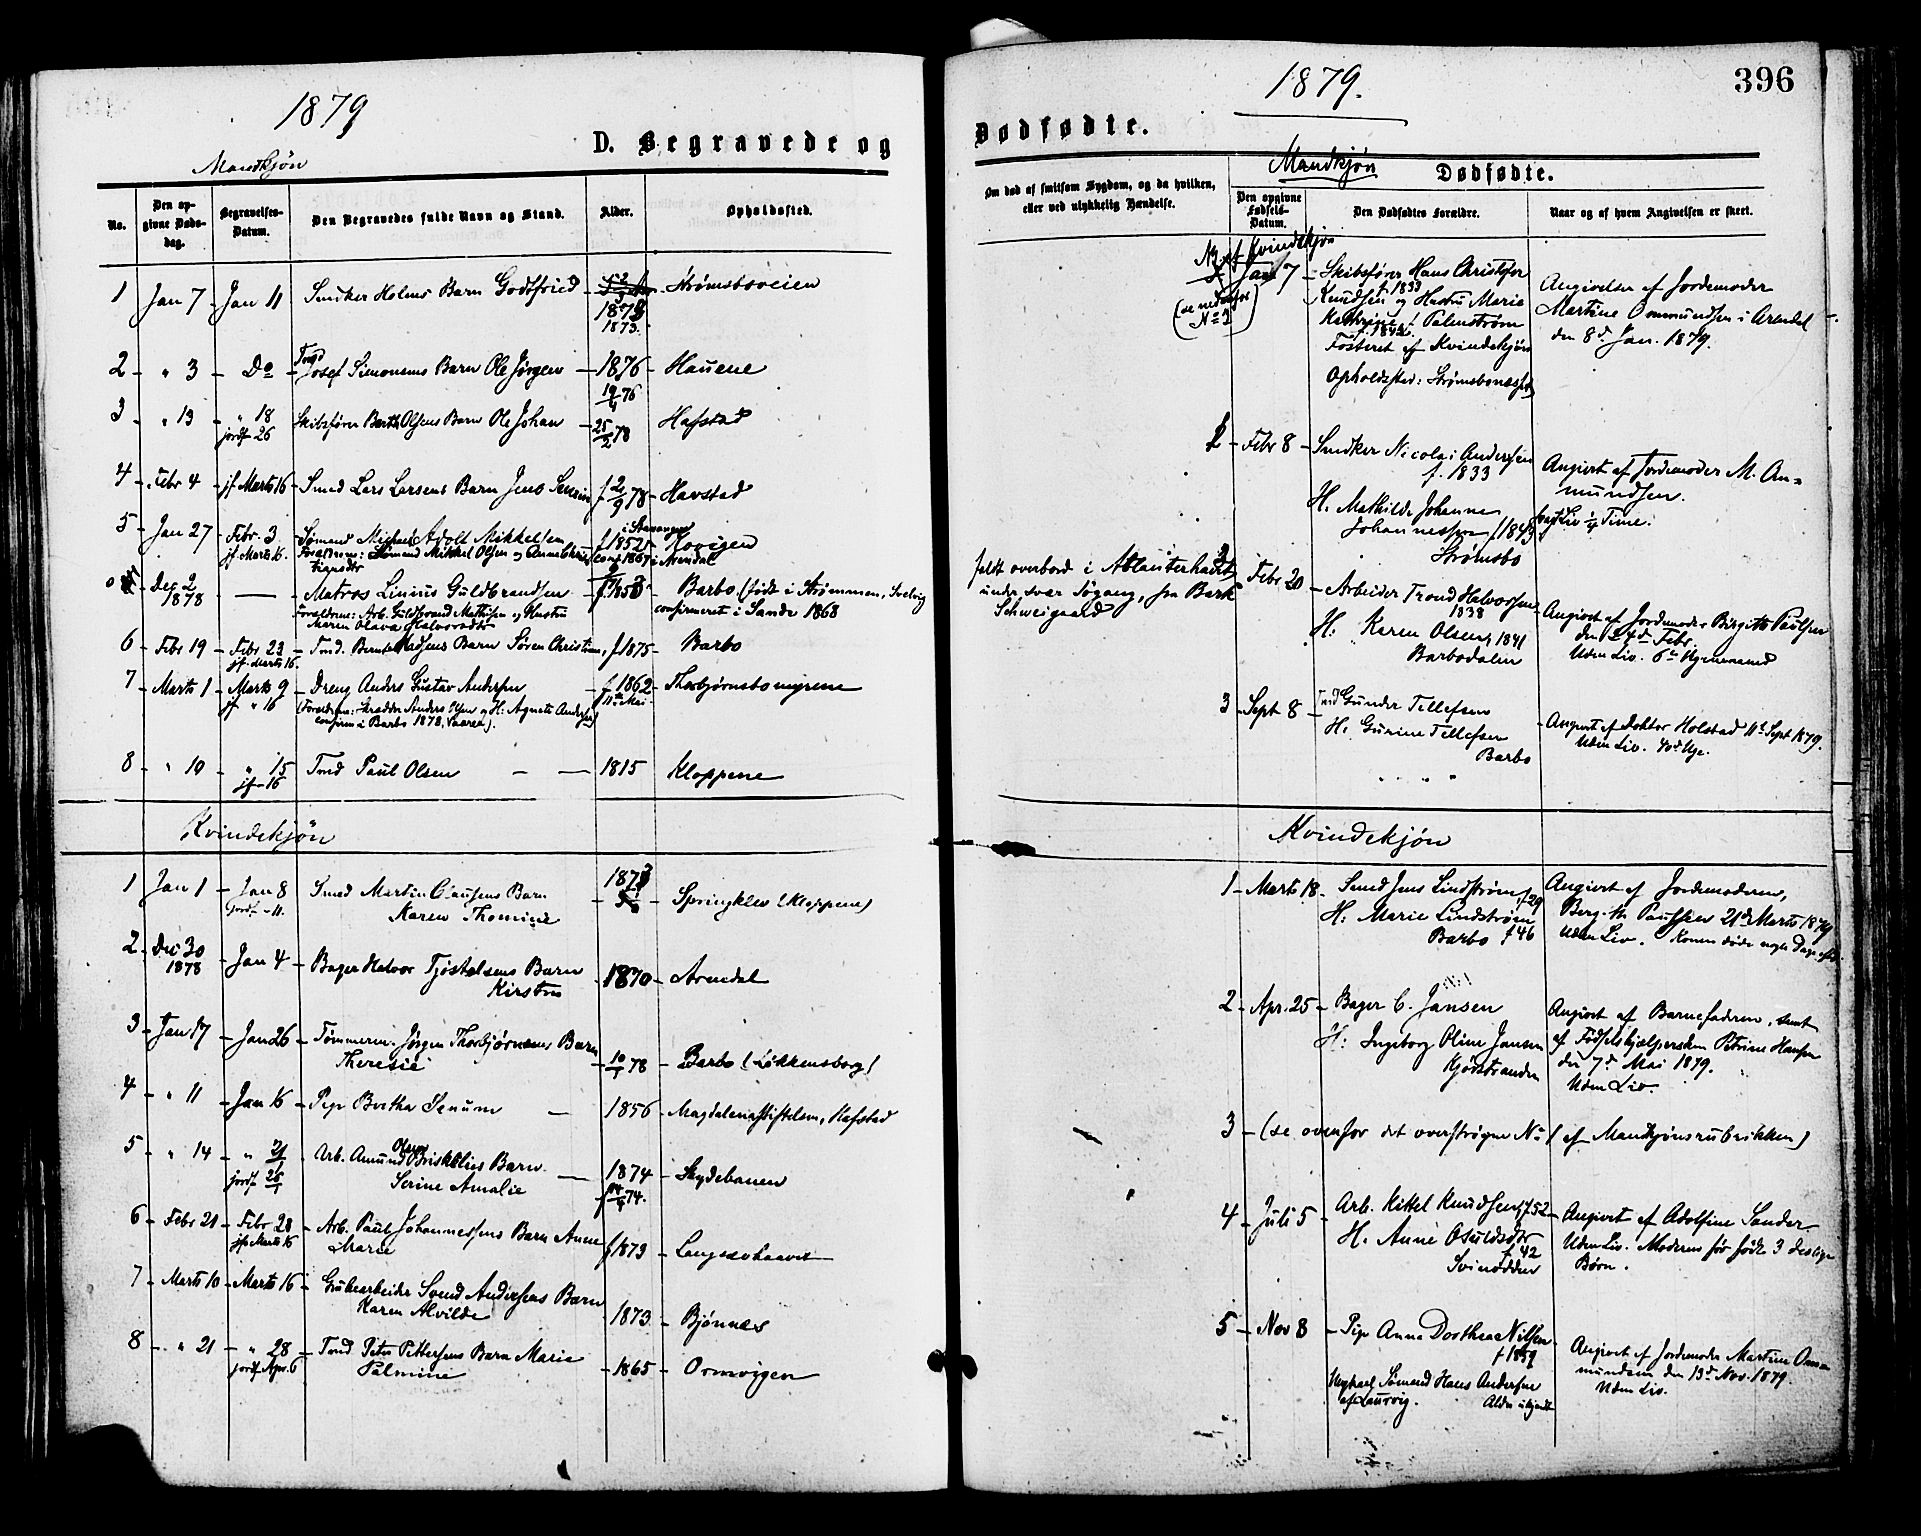 1879
D. Begravede og
Mandkjøn
No.
Den opgivne Dødsdag.
Begravelses-Datum.
Den Begravedes fulde Navn og Stand.
Alder.
Opholdssted.
1 Jan 7 - Jan 11 Snedker Holms Barn Godtfried 1873. Strømsboveien
2 - " 3 - Do - Tmd Josef Simonsens Barn Ole Jørgen - 1876 - Hauene
19/4 76
3 - " 13 - " 18 Skibsfører Olsens Barn Ole Johan - 25/2 78 Hafstad
jordf 26
4 - Febr 4 - jf Marts 16 - Smed Lars Larsens Barn Jens - f 2/9 78 - Havstad
5 - Jan 27 - Febr. 3 - Sømand Michael Adolf Mikkelsen f 1852 i Stavanger
jf Marts 16. Forældrene: Sømand Mikkel Olsen og conf. 1867 i Arendal
Dec 2 1878 — Matros Linius Guldbrandsen - f. 1853 - Barbo (født i Strømmen, Svelvig
Forældrene: Arb. Guldbrand Mathisen og Hustru confirmeret i Sande 1868
Maren Olava Halvorsdtr
6 - Febr 19 - Febr 23 - Tmd. Bernt Madsens Barn Søren Christian, f 1875 - Barbo
jf Marts 16.
7 - Marts 1 - Marts 9 - Dreng Anders Gustav Andersen - f 1862 - Thorbjørnsbomyrene
jf " 16 (Forældrene: Skrædder Anders og H: Agnete Andersen 11te Mai
confirm i Barbo 1878, Vaaren).
8 - " 10 - " 15 Tmd Paul Olsen — — 1815 - Kloppene
jf - 16
Kvindekjøn
1 Jan 1 - Jan 8 Smed Martin Clausens Barn 1873 - Springklev (Kloppene)
Jordf - 11. Karen Thomine
2 - Dec 30 1878 - Jan 4 - Bager Halvor Tjøstelsens Barn Kirsten 1870 - Arendal
3 - Jan 17 - Jan 26 - Tømmerm. Jørgen Thorbjørnsens Barn Theresie - 10/1 78 - Barbo (Løkkensborg)
4 - " 11 - Jan 16 - Pige Bertha Senum — 1856 - Magdalenastiftelsen, Hafstad
5 - " 14 - " 21/1 - Arb. Amund Olsen Barn — 1874 - Skydebanen
jordf 26/1 Serine Amalie
6 - Febr 21 - Febr 28 - Arb. Paul Johannessens Barn Anne Marie f 1873 - Langsævhaavet
jf Marts 16
7 - Marts 10 - Marts 16 - Grubearbeider Svend Andersens Barn Karen Alvilde 1873 - Bjønnes
8 - " 21 - " 28 - Tmd Peter Pettersens Barn Marie Palmine - 1865 - Ormvigen
jordf Apr. 6
1879.
396
Dødfødte.
Mandkjøn
Dødfødte.
Om død af smitsom Sygdom, og da hvilken, eller ved ulykkelig Hændelse.
Den opgivne Fødsels-Datum.
Den Dødfødtes Forældre.
Naar og af hvem Angivelsen er skeet.
NB. af Kvindekjøn
Jan 7 - Skibsfører Hans Christofer Knudsen f. 1833 og Hustru Marie Kathrine f. Palmstrøm f. 1842
(se nedenfor No 3)
Fosteret af Kvindekjøn
Opholdssted: Strømsbonæsset
Angivelse af Jordemoder Martine Ommundsen i Arendal den 8de Jan. 1879.
1 - Febr 8 - Snedker Nicolai Andersen f. 1833
H. Mathilde Johanne Johannessen f 1843
Strømsbo
Angivet af Jordemoder M. Ommundsen.
Liv 1/4 Time.
faldt overbord i under svær Søgang, fra Bark Schweigaard
2 Febr 20 - Arbeider Trond Halvorsen 1838
H: Karen Olsen f 1841
Barbodalen
Angivet af Jordemoder Birgitte Paulsen den 24de Febr.
Uden Liv.
3 - Sept 8 - Tmd Gunder Tellefsen
H. Gurine Tellefsen
Barbo
Angivet af Doktor Holstad 11te Sept 1879.
Uden Liv.
Kvindekjøn
1 - Marts 18 - Smed Jens Lindstrøm f 29
H: Marie Lindstrøm f 46
Barbo
Angivet af Jordemoderen, Bergitte Paulsen 21de Marts 1879
Uden Liv. Konen døde nogle Dage efter.
2 - Apr. 25 - Bager C. Jansen
H: Ingeborg Oline Jansen
Kjødstranden
Angivet af Barnefaderen, samt af Fødselshjælpersken Petrine Hansen den 7de Mai 1879.
Uden Liv.
3 - (se ovenfor det overstrøgne No 1 af Mandkjønsrubrikken)
4 - Juli 5 - Arb. Kittel Knudsen f. 52
H. Anne Osuldsdtr f. 42
Svinodden
Angivet af Adolfine Sander
Uden Liv. Moderen før født 3 deslige Børn.
5 - Nov 8 - Pige Anna Dorthea Nilsen f 1859
Ungkarl Sømand Hans Andersen af Laurvig. Alder ukjendt
Angivet af Jordemoder Martine Ommundsen den 13de Nov. 1879
Uden Liv.